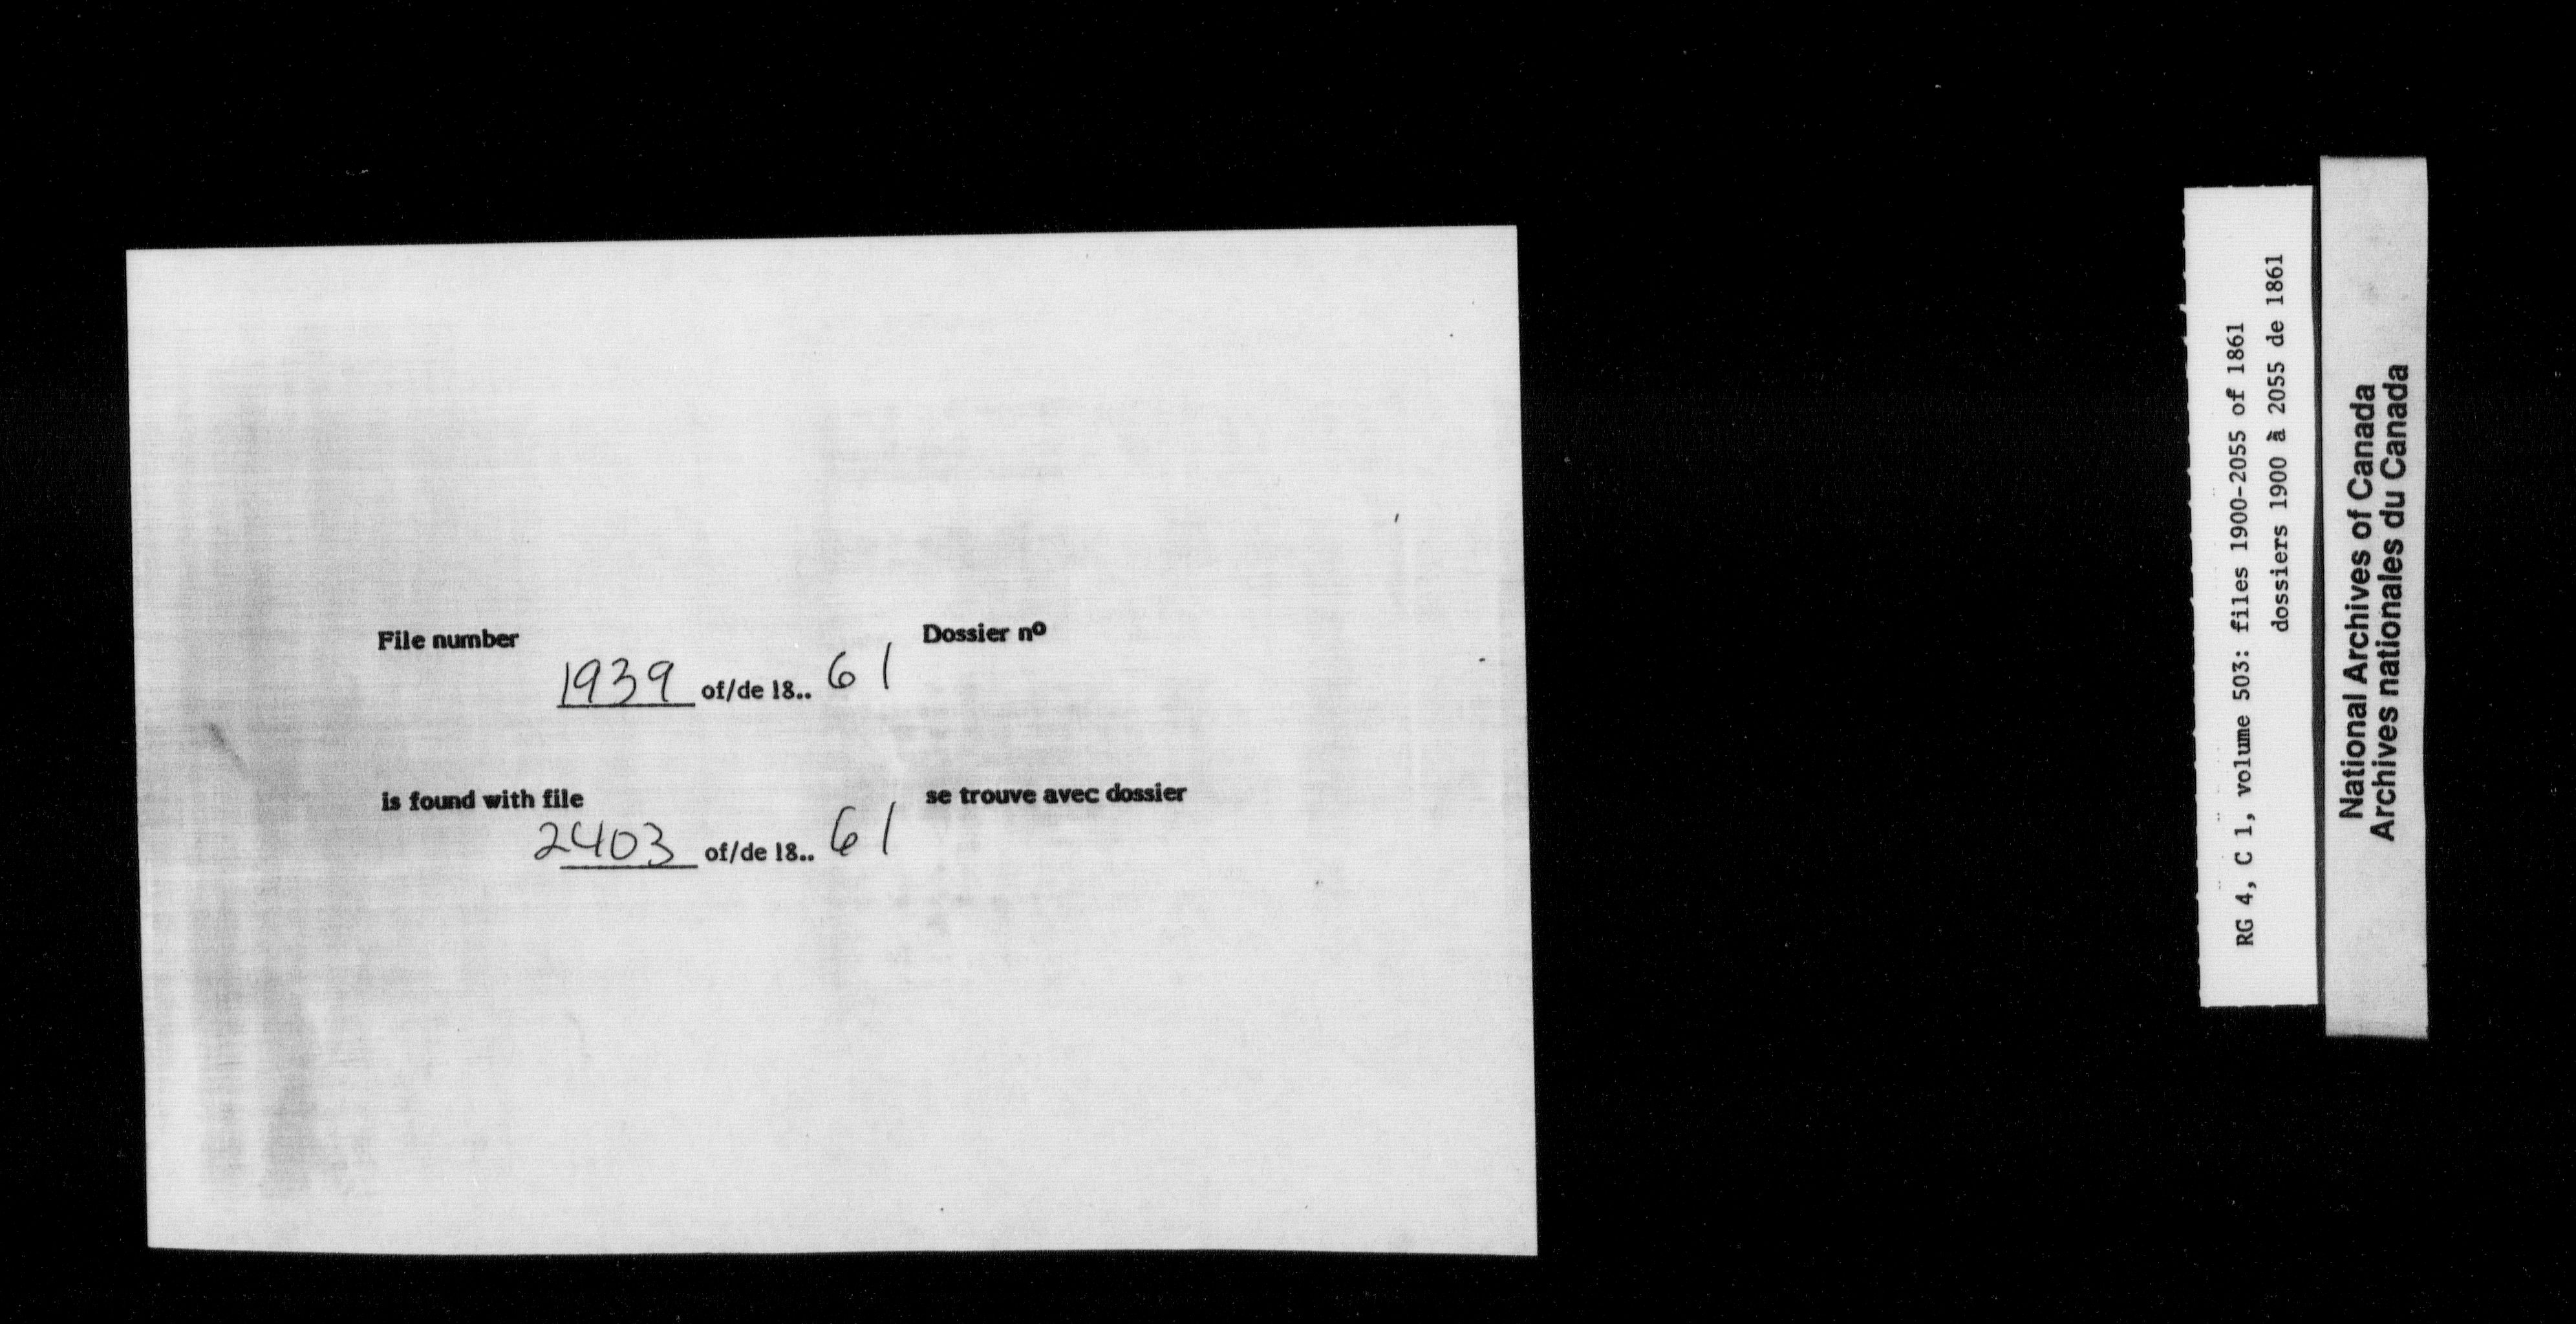 File number Dossier nº
1939 of/de 18.. 61
is found with file se trouve avec dossier
2403 of/de 18.. 61
RG 4, C 1, volume 503: files 1900-2055 of 1861
dossiers 1900 à 2055 de 1861
National Archives of Canada
Archives nationales du Canada